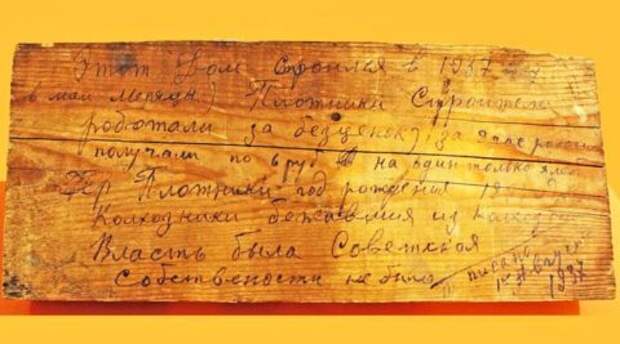 Этот Дом строился в 1937 году
в мае месяце) Плотники Строители
роботали за безценок, за
получали по 8 руб на один только
Плотники год рождения
Колхозники бежавшия из колхозов
Власть была Советская
Собствености не было писано
1го Август
1937